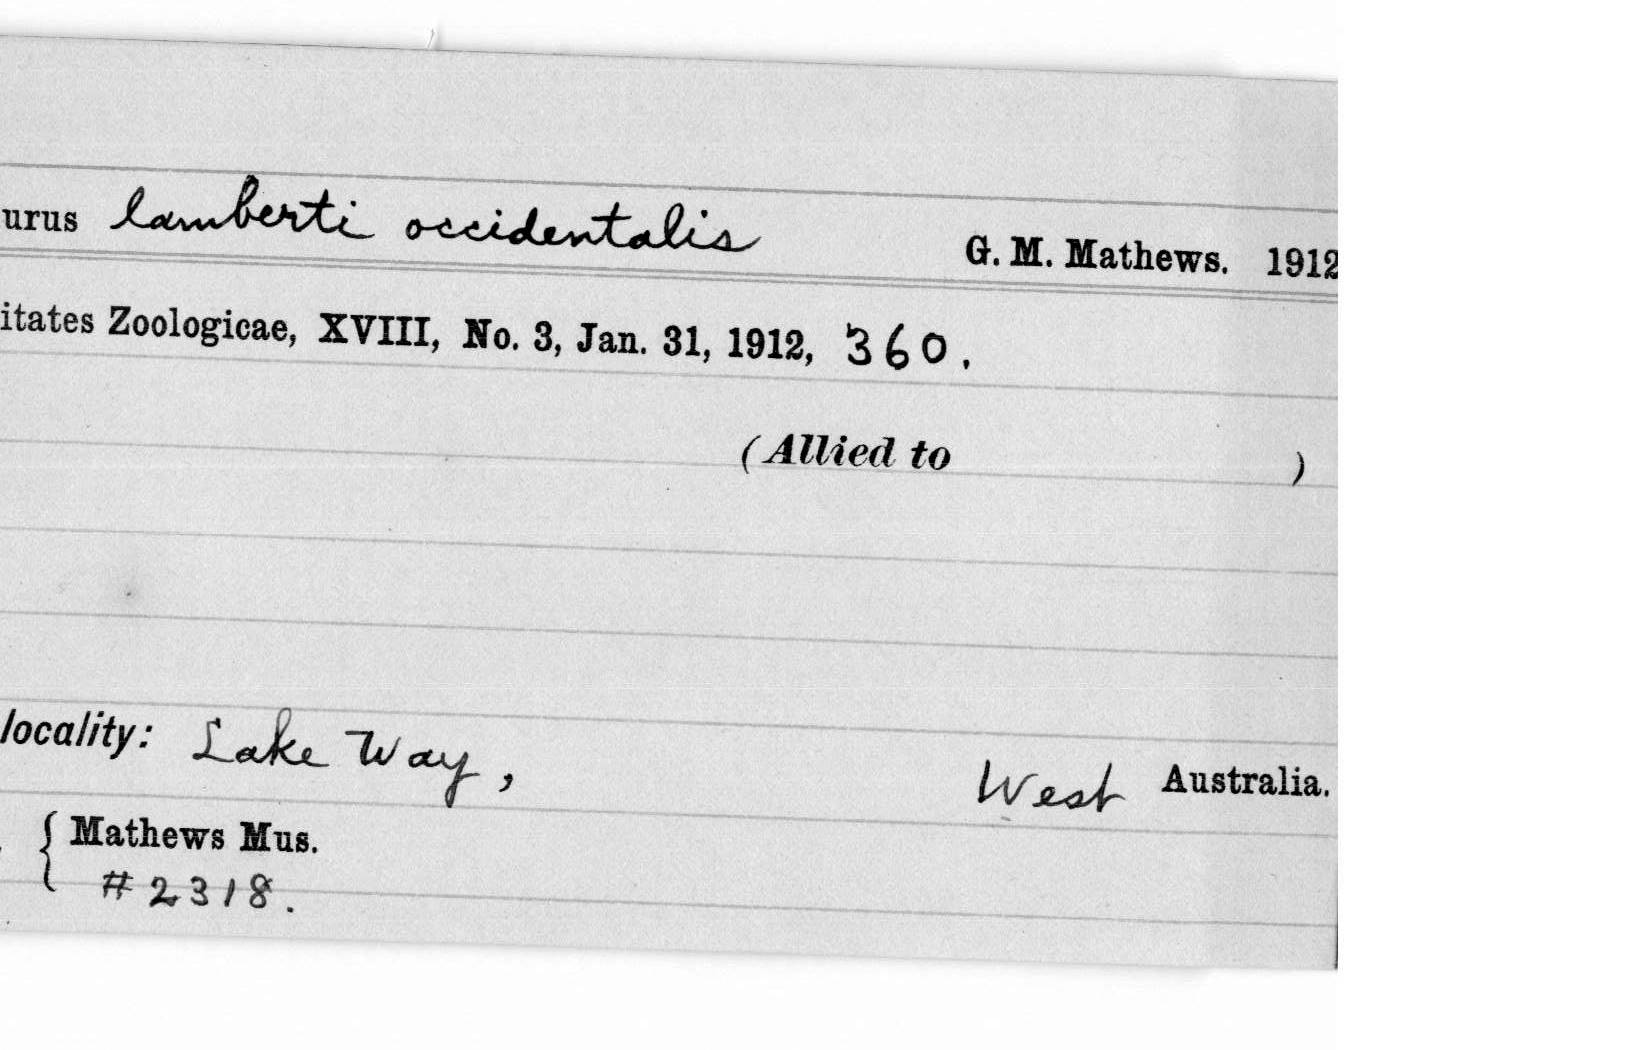 urus lamberti occidentalis G. M. Mathews. 1912
itates Zoologicae, XVIII, No. 3, Jan. 31, 1912, 360.
(Allied to )
locality: Lake Way, West Australia.
{ Mathews Mus.
#2318.